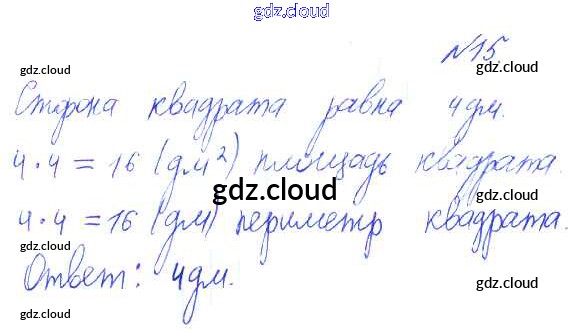 gdz.cloud
№15.
gdz.cloud gdz.cloud
Сторона квадрата равна 4дм.
gdz.cloud gdz.cloud
4·4=16 (дм²) площадь квадрата.
gdz.cloud
4·4=16 (дм) периметр квадрата.
gdz.cloud gdz.cloud
Ответ: 4дм.
gdz.cloud gdz.cloud